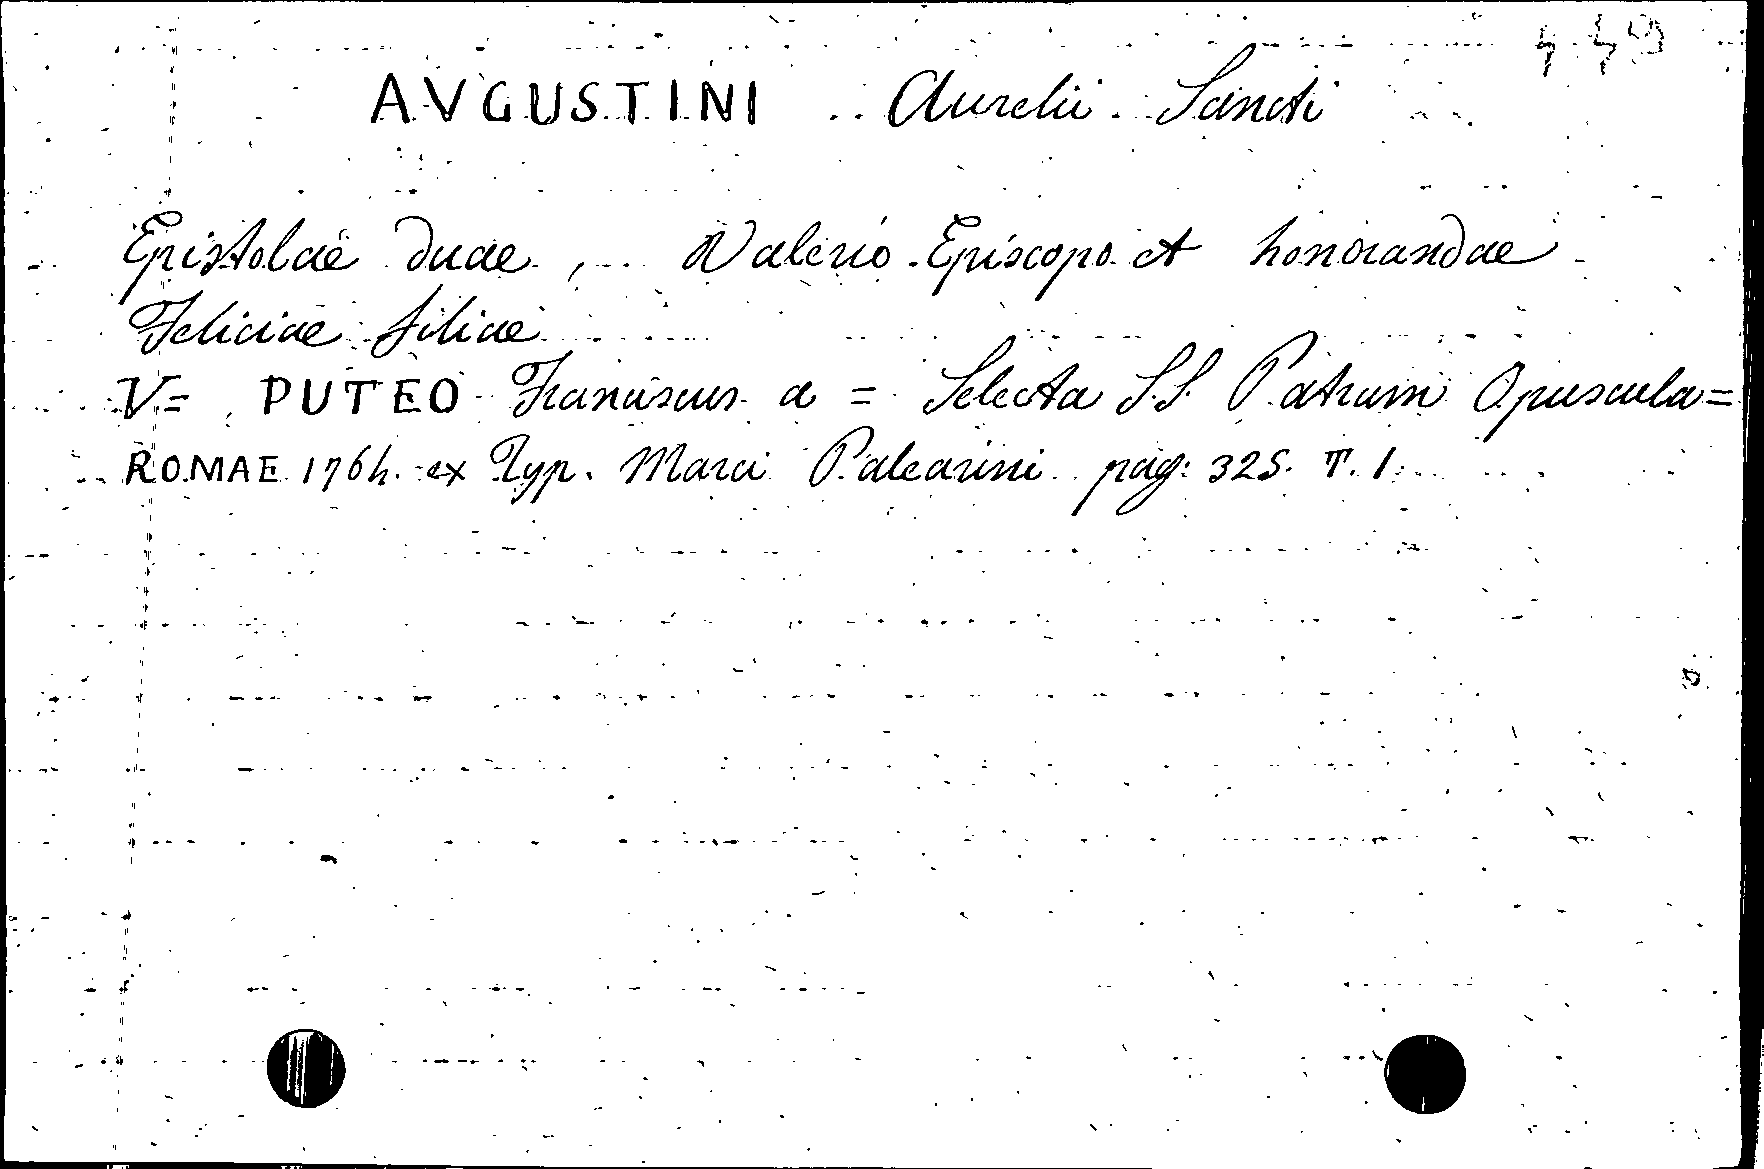 449
AVGUSTINI Aurelii Sancti
Epistolae duae, Valerio Episcopo et honorandae
Feliciae filiae
V= PUTEO Franciscus a = Selecta S.S. Patrum Opuscula=
ROMAE 1764. ex Typ. Marci Palearini pag: 325. T. 1.